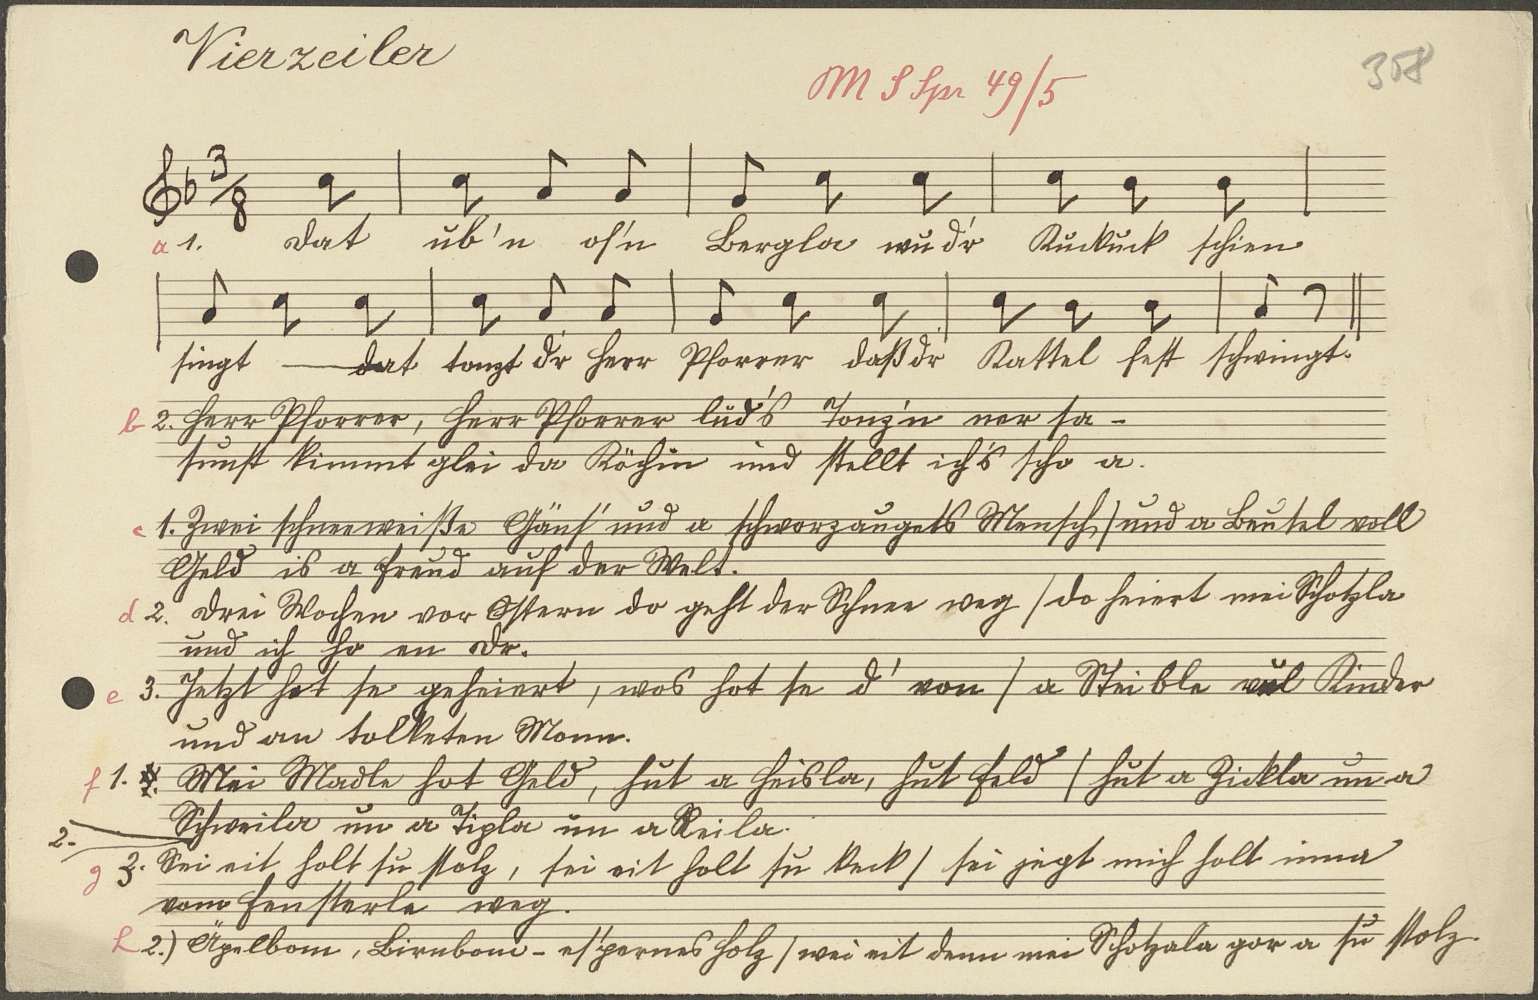 Vierzeiler
M S Spr 49/5
358
3/8
a 1. Dat ub'n of'n Bergla wu d'r Kuckuck schien
singt — dat tonzt d'r Herr Pforrer daß d'r Kattel fest schwingt.
b 2. Herr Pforrer, Herr Pforrer lud's Tonz'n ner sa -
sunst kimmt glei da Köchin und stellt ich's scho a.
c 1. Zwei schneeweiße Gäns' und a schworzaugets Mensch / und a Beutel voll
Geld is a Freud auf der Welt.
d 2. Drei Wochen vor Ostern do geht der Schnee weg / do heiert mei Schotzla
und ich ho en Dr.
e 3. Jetzt hot se geheiert, wos hot se d' von / a Steible vul Kinder
und an tolketen Monn.
f 1. Mei Madle hot Geld, hut a Heisla, hut Feld / hut a Zickla un a
Schweila un a Tipla un a Reila.
2.
g 3. Sei eit holt su stolz, sei eit holt su keck / sei jegt mich holt imma
vom Fensterle weg.
h 2.) Äpelbom, Birnbom - es'pernes Holz / wei eit denn mei Schotzala gor a su stolz.